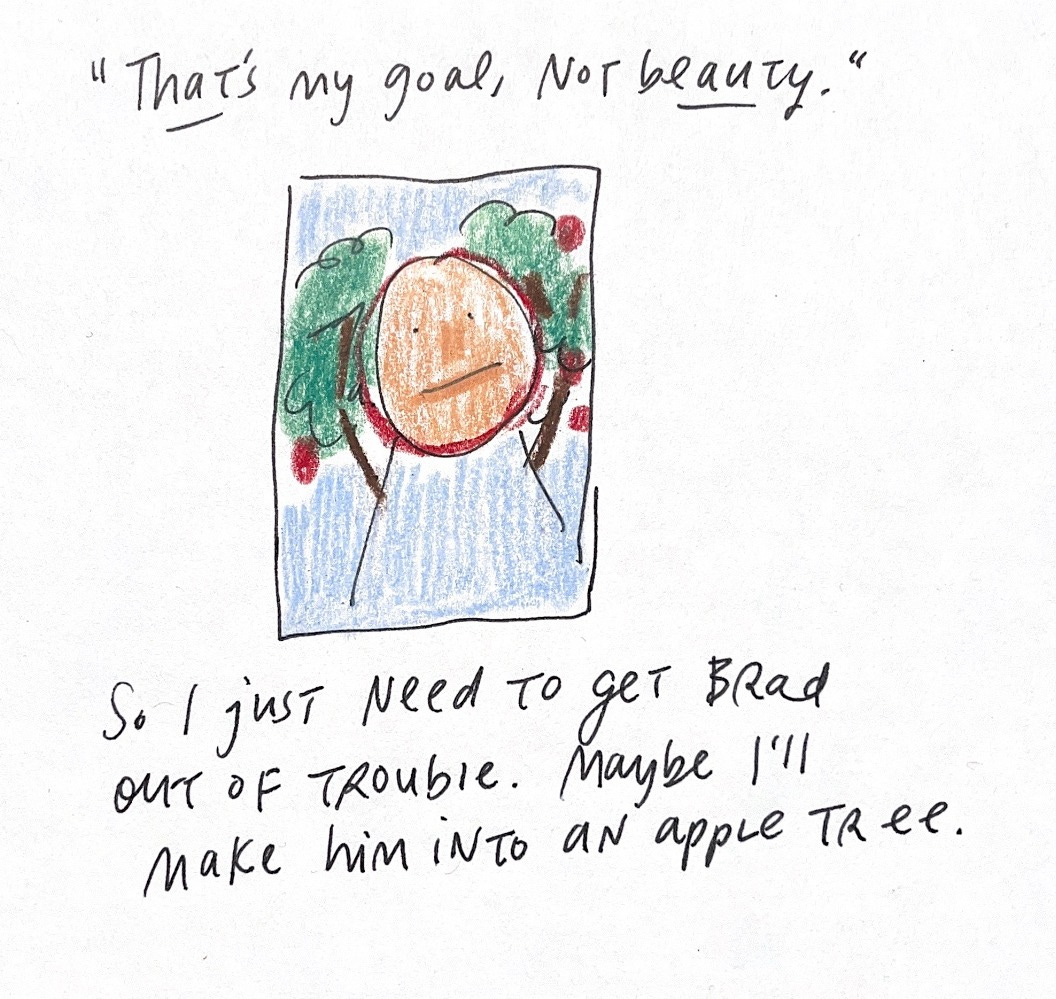 "That's my goal, Not beauty."
So I just Need to get Brad
out of trouble. Maybe I'll
make him into an apple tree.